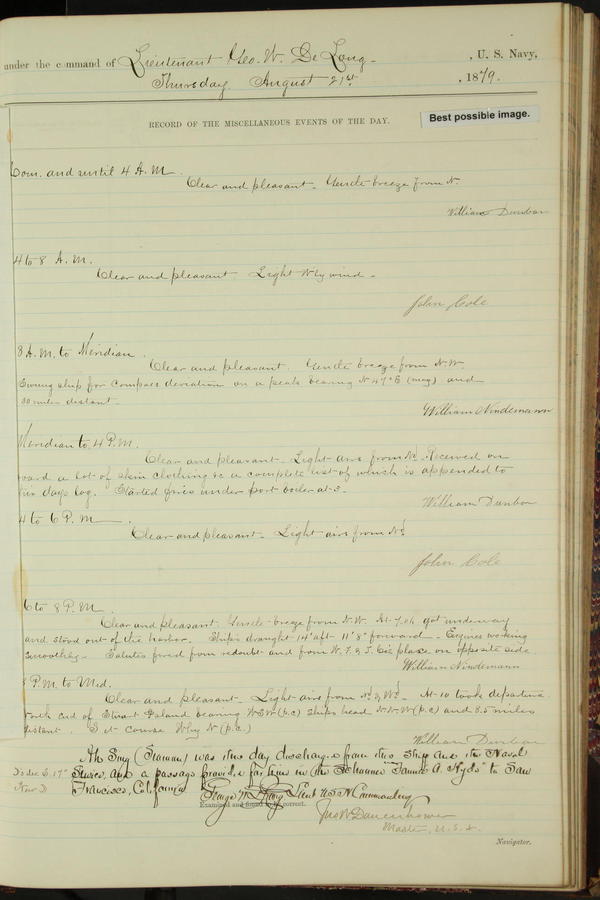 under the command of Lieutenant Geo. W. De Long, U. S. Navy,
Thursday August 21st, 1879.
Best possible image.
RECORD OF THE MISCELLANEOUS EVENTS OF THE DAY.
Com. and until 4 A.M.
Clear and pleasant. Gentle breeze from N.
William Dunbar
4 to 8 A.M.
Clear and pleasant Light N'ly wind.
John Cole
8 A.M. to Meridian.
Clear and pleasant. Gentle breeze from N.W.
Swung ship for compass deviation on a peak bearing N 47° E (mag) and
30 miles distant.
William Nindemann
Meridian to 4 P.M.
Clear and pleasant. Light airs from Received on
board a lot of skin clothing &c a complete list of which is appended to
this days log. Started fires under port boiler at 3.
William Dunbar
4 to 6 P.M.
Clear and pleasant. Light airs from
John Cole
6 to 8 P.M.
Clear and pleasant. Gentle breeze from N.W. At got underway
and stood out of the harbor. Ships draught 14' aft 11' 8" forward. Engines working
smoothly. Salutes fired from redoubt and from place on opposite side.
William Nindemann
8 P.M. to Mid.
Clear and pleasant. Light airs from At 10 took departure
North end of Stuart Island bearing WSW (p.c) Ships head N.N.W (p.c) and 8.5 miles
distant. course (p.c.)
William Dunbar
Ah Sing (Seaman) was this day discharged from this ship and the Naval
Service, and a passage provided for him in the Schooner "Fannie A. Hyde" to San
Francisco, California
George W. De Long Lieut U.S.N Commanding
Examined and found to be correct.
Jno W Danenhower
Master, U.S.N.
Navigator.